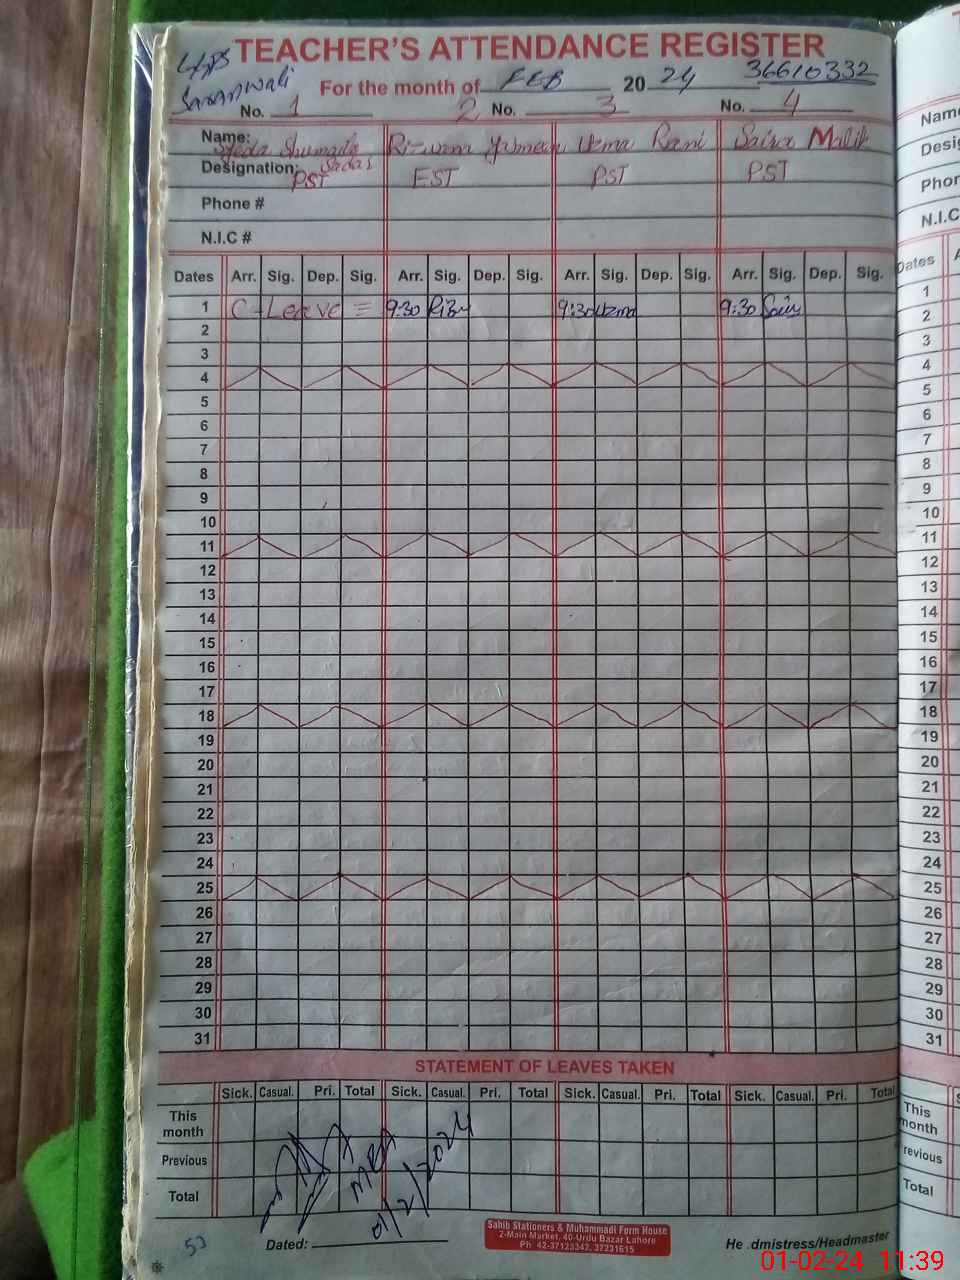 TEACHER'S ATTENDANCE REGISTER
For the month of FEB 2024 36610332
No. 1 2 No. 3 No. 4
Name: Shumaila Sadaf Rizwan Uzma Rani Saira Malik
Designation: PST EST PST PST
Phone #
N.I.C #
Dates Arr. Sig. Dep. Sig. Arr. Sig. Dep. Sig. Arr. Sig. Dep. Sig. Arr. Sig. Dep. Sig.
1 C-Leave = 9:30 9:30 Uzma 9:30
2
3
4
5
6
7
8
9
10
11
12
13
14
15
16
17
18
19
20
21
22
23
24
25
26
27
28
29
30
31
STATEMENT OF LEAVES TAKEN
Sick. Casual. Pri. Total Sick. Casual. Pri. Total Sick. Casual. Pri. Total Sick. Casual. Pri. Total
This month
Previous
Total
MEA
01/2/2024
53
Dated:
Sahib Stationers & Muhammadi Form House
2-Main Market, 40-Urdu Bazar Lahore
Ph 42-37123342, 37231615
He .dmistress/Headmaster
Name
Desig
Phon
N.I.C
Dates A
1
2
3
4
5
6
7
8
9
10
11
12
13
14
15
16
17
18
19
20
21
22
23
24
25
26
27
28
29
30
31
S
This
month
revious
Total
01-02-24 11:39